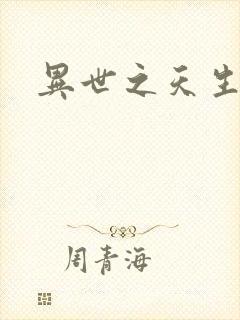 異世之天生
周青海